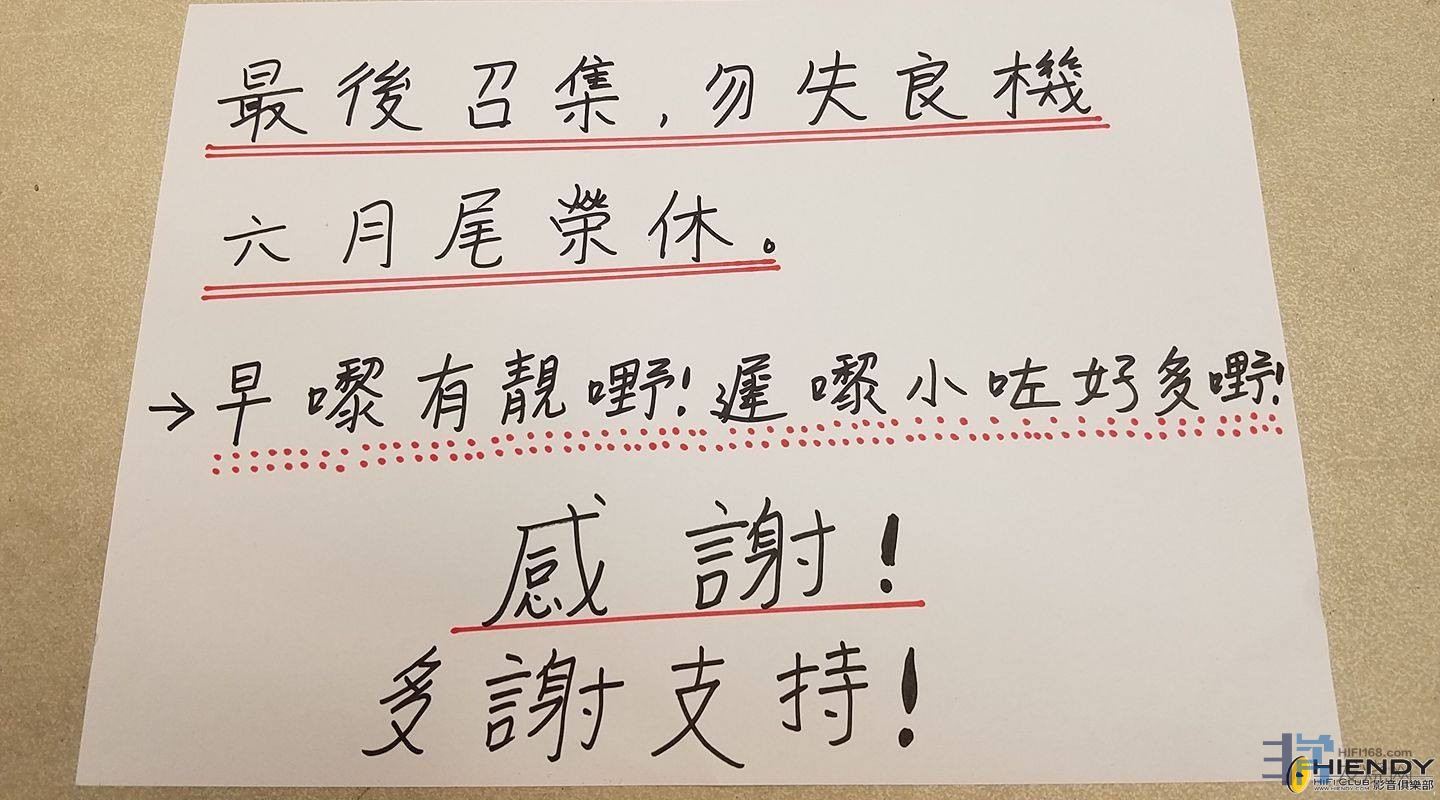 最後召集，勿失良機
六月尾榮休。
→早嚟有靚嘢！遲嚟小咗好多嘢！
感謝！
多謝支持！
HIFI168.com
HIENDY
HIFI CLUB 影音俱樂部
WWW.HIENDY.COM